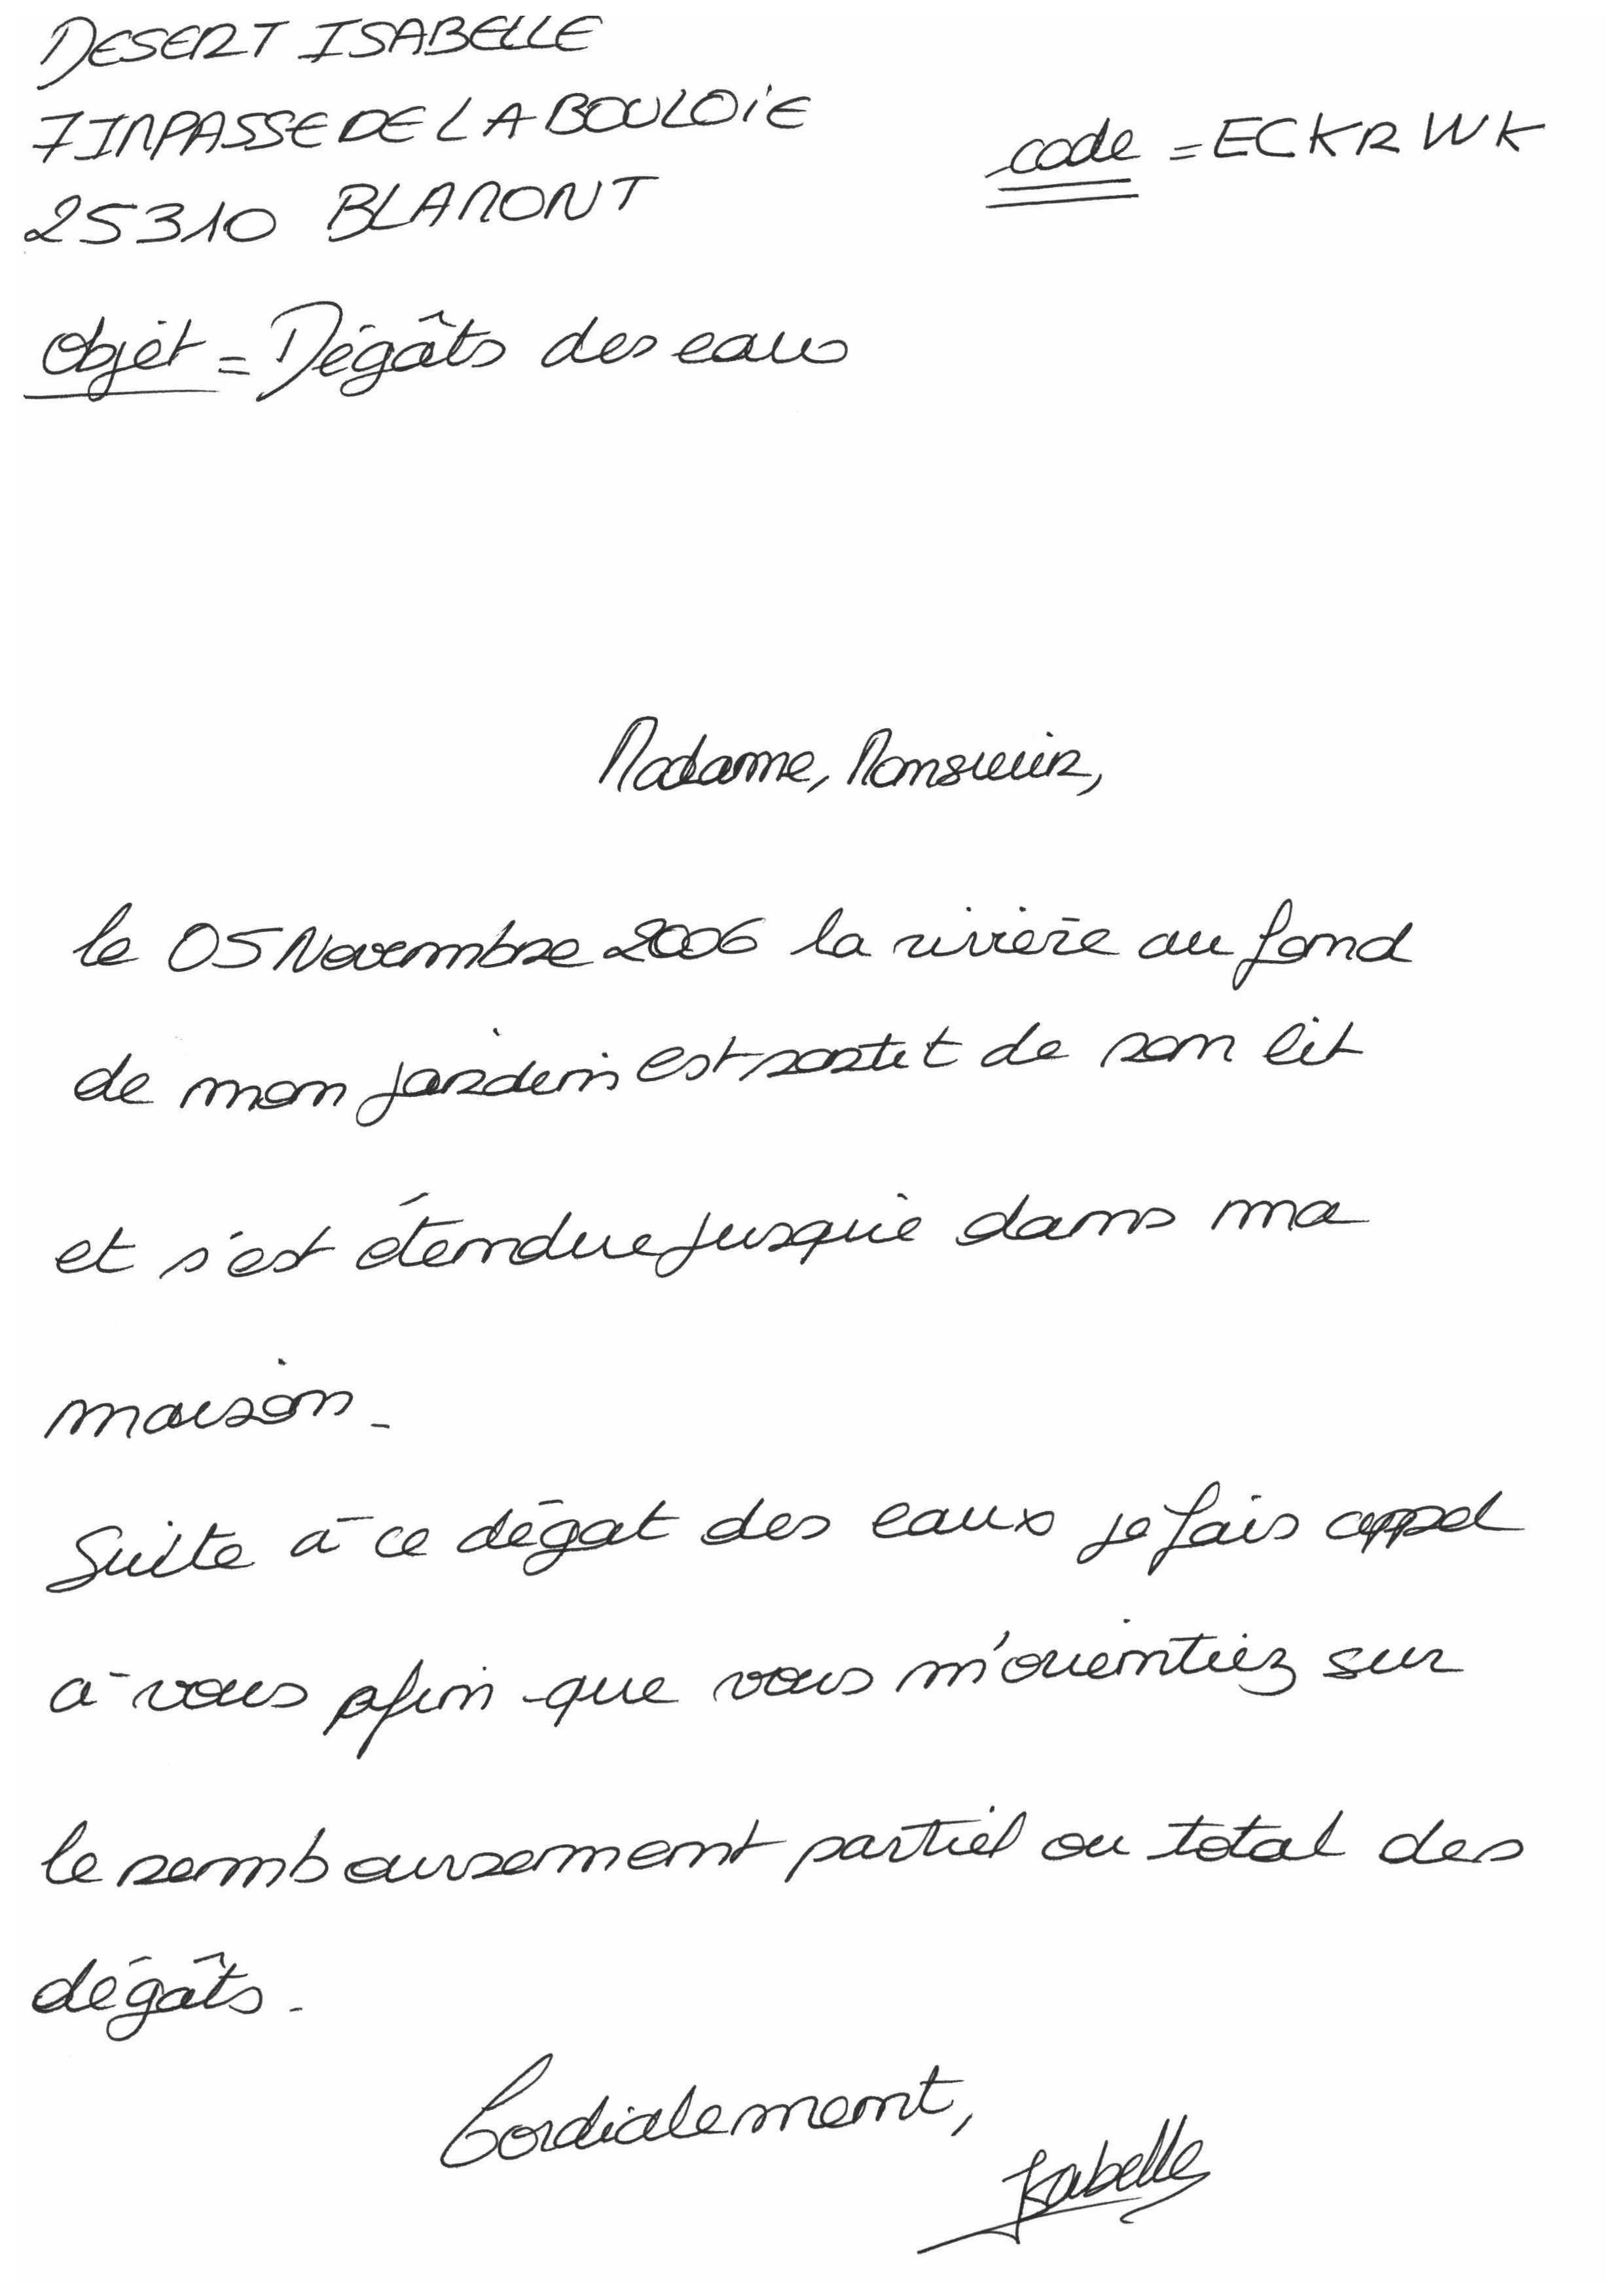 DESERT ISABELLE
7 IMPASSE DE LA BOULOIE
code = ECKRWK
25310 BLAMONT
Objet = Dégâts des eaux
Madame, Monsieur,
le 05 Novembre 2006 la rivière au fond
de mon jardin est sortit de son lit
et s'est étendue jusque dans ma
maison.
Suite à ce dégat des eaux je fais appel
à vous afin que vous m'orientiez sur
le remboursement partiel ou total des
dégâts.
Cordialement,
Isabelle